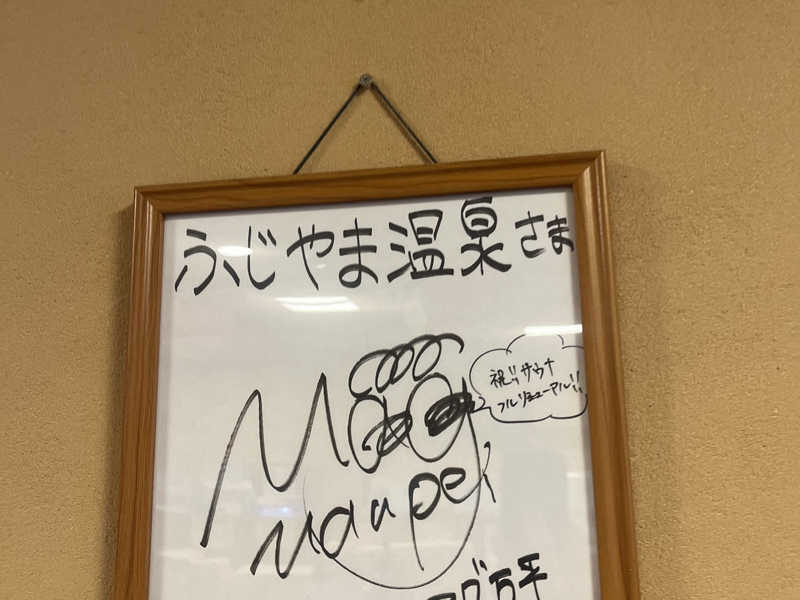 ふじやま温泉さま
祝!!サウナ
フルリニューアル!!
Mag
Manpei
マグ万平